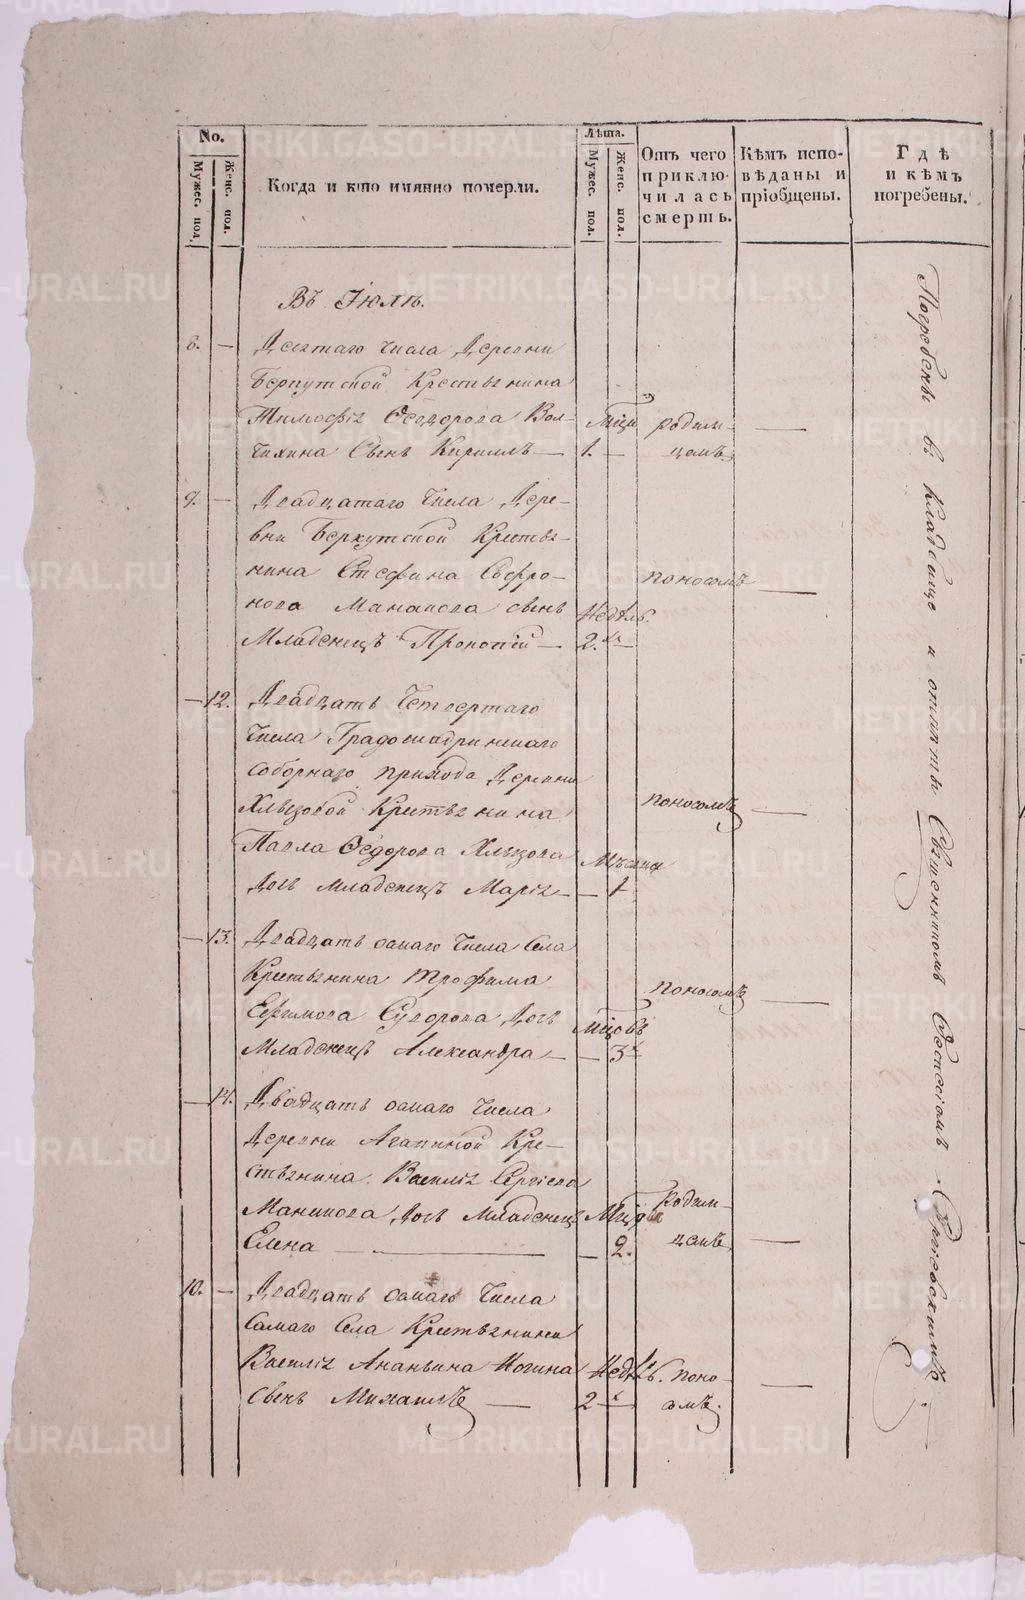 No.
Мужес. пол.
Женс. пол.
Когда и кто имянно померли.
Лѣта.
Мужес. пол.
Женс. пол.
Отъ чего приклю-чилась смерть.
Кѣмъ испо-вѣданы и пріобщены.
Гдѣ и кѣмъ погребены.
Въ Іюлѣ.
8. — Десятаго числа Деревни
Беркутской Крестьянина
Тимофѣя Ѳеодорова Вол-
чихина Сынъ Кириллъ — Мѣця 1. — родим-цемъ. —
9. — Двадцатаго числа Дере-
вни Беркутской Крестья-
нина Стефана Софро-
нова Манакова сынъ
Младенецъ Прокопій — Недѣль. 2.хъ — поносомъ —
— 12. Двадцать Четвертаго
числа Градошадринскаго
Соборнаго прихода Деревни
Хлызовой Крестьянина
Павла Ѳедорова Хлызова
Дочь Младенецъ Марія — Мѣсяца — 1 поносомъ —
— 13. Двадцать осмаго числа Села
Крестьянина Трофима
Ефимова Суворова Дочь
Младенецъ Александра — Мѣцовъ — 3хъ поносомъ —
— 14. Двадцать осмаго числа
Деревни Агапиной Кре-
стьянина Василія Сергіева
Манакова Дочь Младенецъ
Елена — — 2. родим-цемъ —
10. — Двадцать осмаго числа
Самаго Села Крестьянина
Василія Ананьина Ногина
Сынъ Михаилъ — Недѣль. 2хъ — поно-смъ. —
Погребены въ кладбище и отпѣты Священникомъ
METRIKI.GASO-URAL.RU